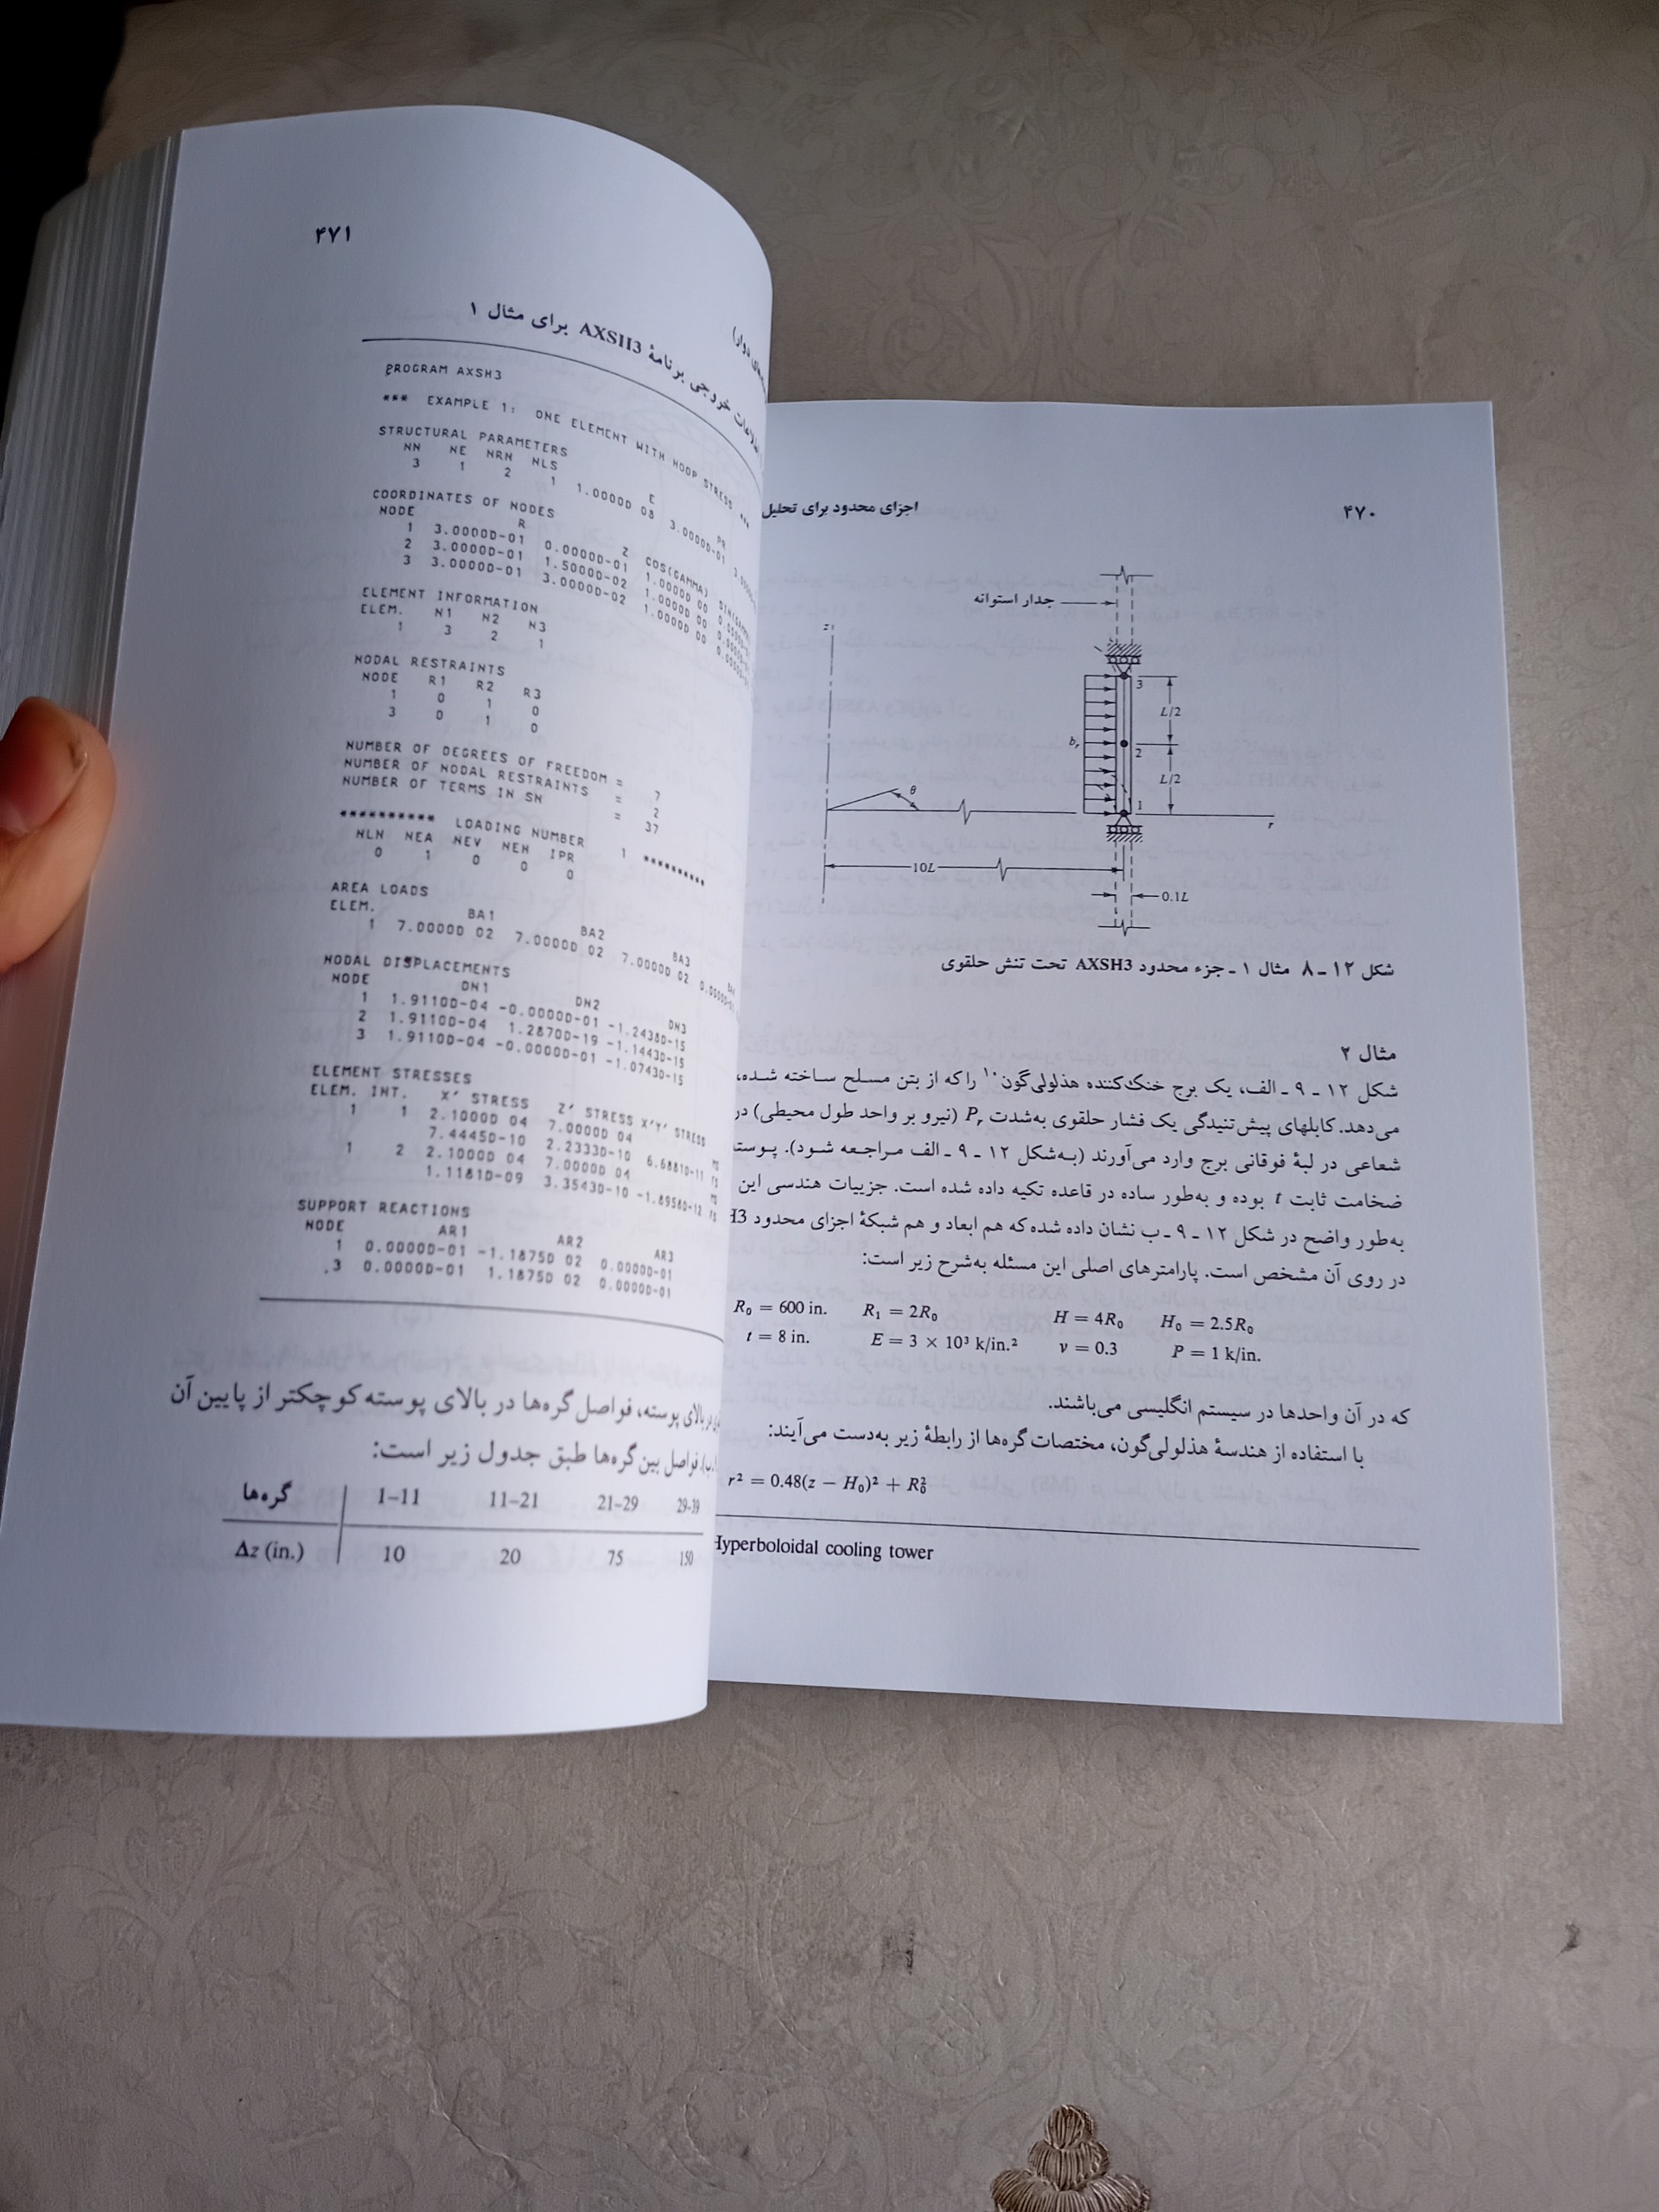 ۴۷۰
اجزای محدود برای تحلیل
جدار استوانه
z
3
L/2
b_r
2
L/2
θ
1
r
10L
0.1L
شکل ۱۲ ـ ۸ مثال ۱ ـ جزء محدود AXSH3 تحت تنش حلقوی
مثال ۲
شکل ۱۲ ـ ۹ ـ الف، یک برج خنک‌کننده هذلولی‌گون۱۰ را که از بتن مسلح ساخته شده،
می‌دهد. کابلهای پیش‌تنیدگی یک فشار حلقوی به‌شدت P_r (نیرو بر واحد طول محیطی) در
شعاعی در لبهٔ فوقانی برج وارد می‌آورند (به‌شکل ۱۲ ـ ۹ ـ الف مراجعه شود).
ضخامت ثابت t بوده و به‌طور ساده در قاعده تکیه داده شده است. جزییات هندسی این
به‌طور واضح در شکل ۱۲ ـ ۹ ـ ب نشان داده شده که هم ابعاد و هم شبکهٔ اجزای محدود
در روی آن مشخص است. پارامترهای اصلی این مسئله به‌شرح زیر است:
R₀ = 600 in. R₁ = 2R₀ H = 4R₀ H₀ = 2.5R₀
t = 8 in. E = 3 × 10³ k/in.² ν = 0.3 P = 1 k/in.
که در آن واحدها در سیستم انگلیسی می‌باشند.
با استفاده از هندسهٔ هذلولی‌گون، مختصات گره‌ها از رابطهٔ زیر به‌دست می‌آیند:
r² = 0.48(z − H₀)² + R₀²
Hyperboloidal cooling tower
۴۷۱
خروجی برنامهٔ AXSH3 برای مثال ۱
PROGRAM AXSH3
*** EXAMPLE 1: ONE ELEMENT WITH HOOP STRESS ***
STRUCTURAL PARAMETERS
NN NE NRN NLS E PR
3 1 2 1 1.0000D 08 3.0000D-01
COORDINATES OF NODES
NODE R Z COS(GAMMA)
1 3.0000D-01 0.0000D-01 1.0000D 00
2 3.0000D-01 1.5000D-02 1.0000D 00
3 3.0000D-01 3.0000D-02 1.0000D 00
ELEMENT INFORMATION
ELEM. N1 N2 N3
1 3 2 1
NODAL RESTRAINTS
NODE R1 R2 R3
1 0 1 0
3 0 1 0
NUMBER OF DEGREES OF FREEDOM = 7
NUMBER OF NODAL RESTRAINTS = 2
NUMBER OF TERMS IN SN = 37
********** LOADING NUMBER 1 **********
NLN NEA NEV NEH IPR
0 1 0 0 0
AREA LOADS
ELEM. BA1 BA2 BA3
1 7.0000D 02 7.0000D 02 7.0000D 02
NODAL DISPLACEMENTS
NODE DN1 DN2 DN3
1 1.9110D-04 -0.0000D-01 -1.2438D-15
2 1.9110D-04 1.2870D-19 -1.1443D-15
3 1.9110D-04 -0.0000D-01 -1.0743D-15
ELEMENT STRESSES
ELEM. INT. X' STRESS Z' STRESS X'Y' STRESS
1 1 2.1000D 04 7.0000D 04
7.4445D-10 2.2333D-10 6.6881D-11
1 2 2.1000D 04 7.0000D 04
1.1181D-09 3.3543D-10 -1.8958D-12
SUPPORT REACTIONS
NODE AR1 AR2 AR3
1 0.0000D-01 -1.1875D 02 0.0000D-01
3 0.0000D-01 1.1875D 02 0.0000D-01
بالای پوسته، فواصل گره‌ها در بالای پوسته کوچکتر از پایین آن
فواصل بین گره‌ها طبق جدول زیر است:
گره‌ها 1–11 11–21 21–29 29-39
Δz (in.) 10 20 75 150